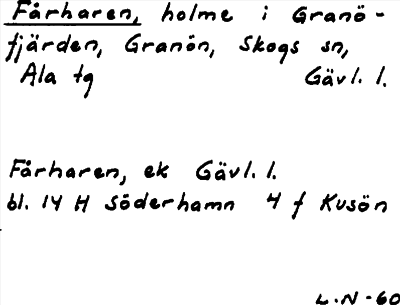 Fårharen, holme i Granö-
fjärden, Granön, Skogs sn,
Ala tg Gävl. l.
Fårharen, ek Gävl. l.
bl. 14 H Söderhamn 4 f Kusön
L.N-60